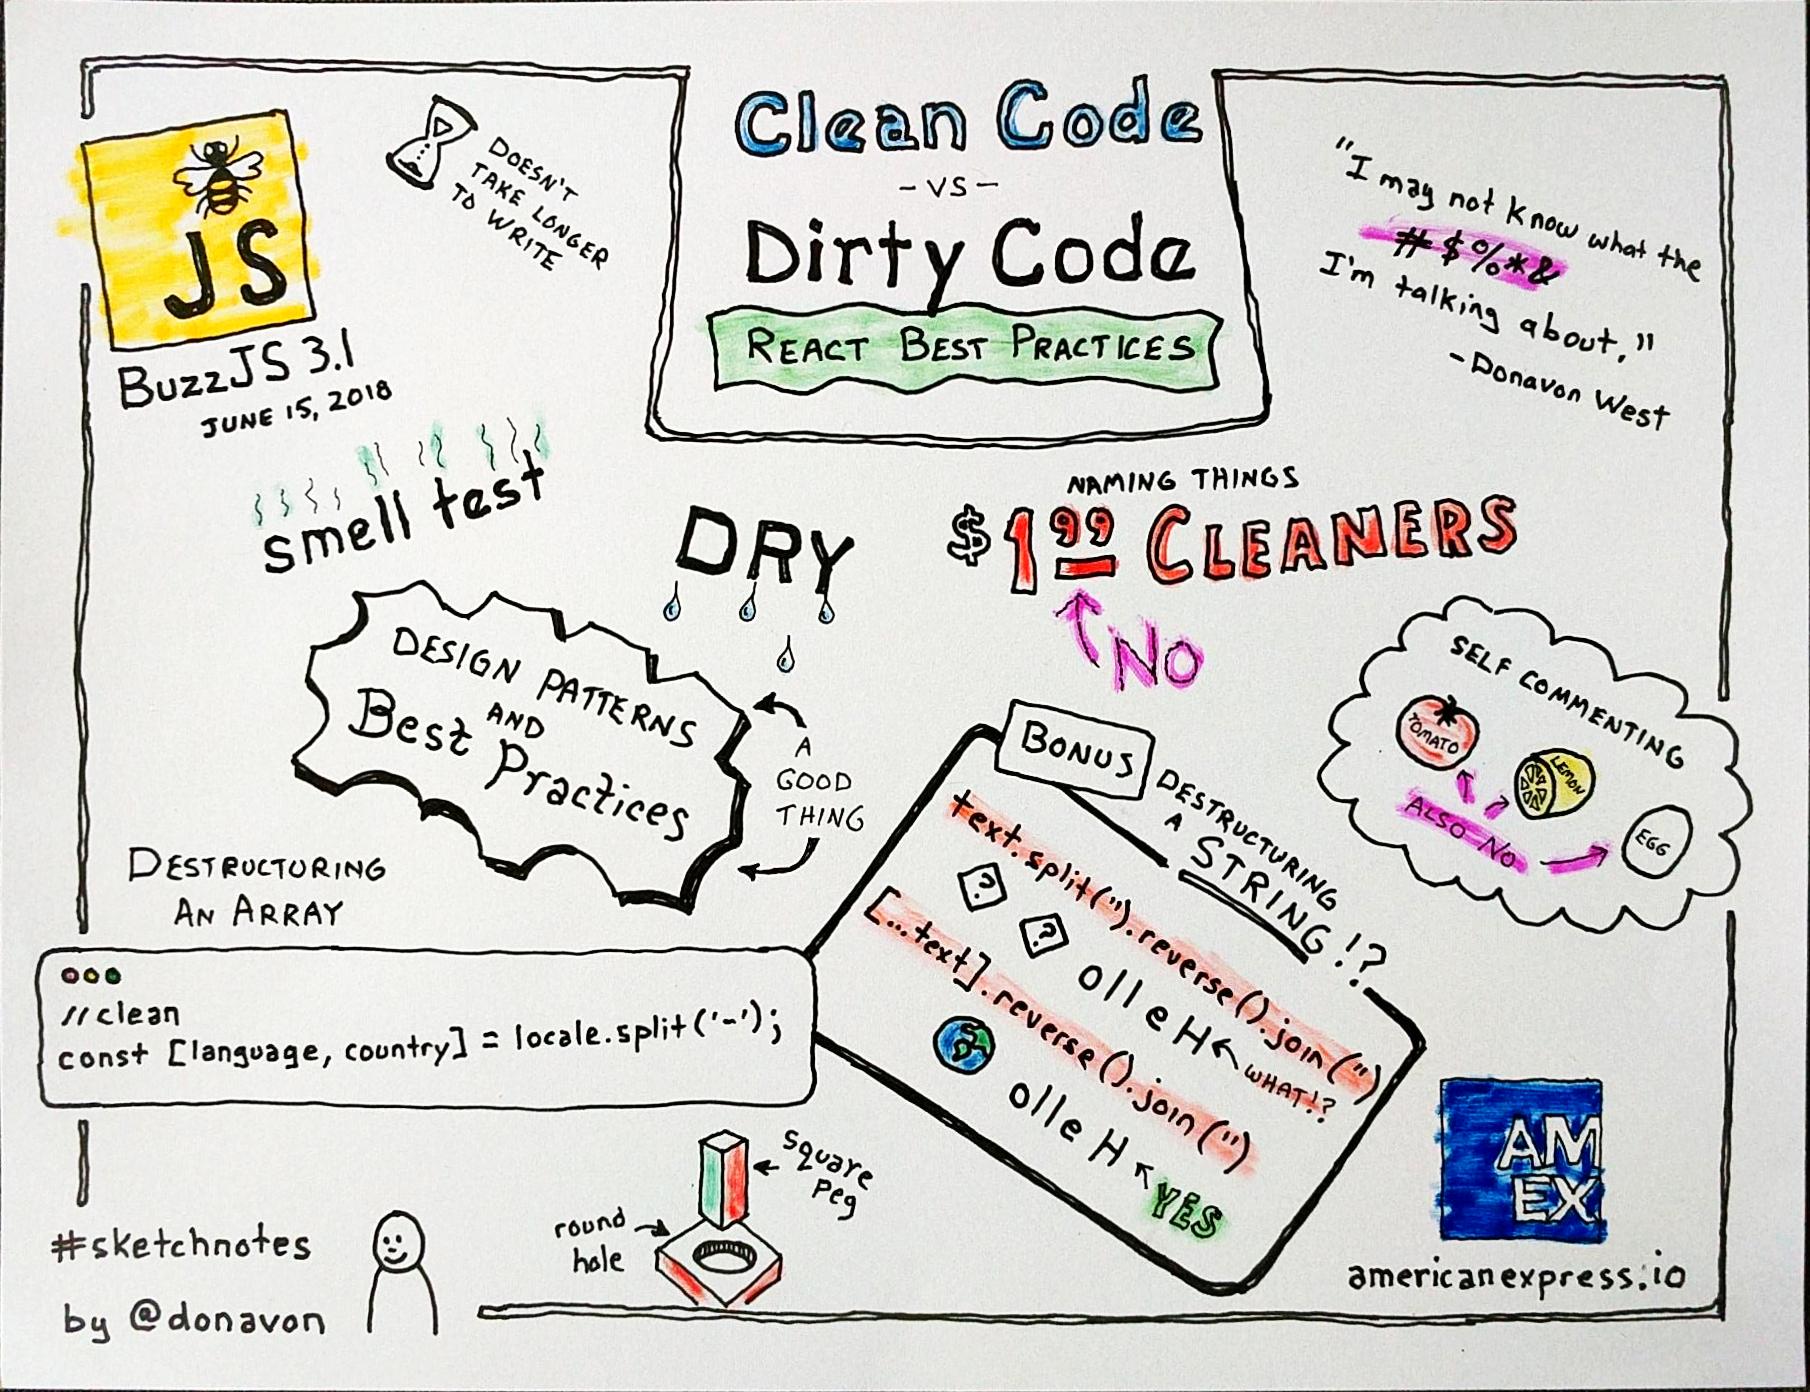 Clean Code
- VS -
Dirty Code
REACT BEST PRACTICES
JS
BUZZJS 3.1
JUNE 15, 2018
DOESN'T
TAKE LONGER
TO WRITE
"I may not know what the
#$%*&
I'm talking about."
- Donavon West
smell test
DRY
NAMING THINGS
$1.99 CLEANERS
NO
DESIGN PATTERNS
AND
Best Practices
A
GOOD
THING
SELF COMMENTING
TOMATO
LEMON
EGG
ALSO NO
DESTRUCTURING
AN ARRAY
//clean
const [language, country] = locale.split('-');
BONUS
DESTRUCTURING
A
STRING!?
text.split('').reverse().join('')
? ? olleH
WHAT!?
[...text].reverse().join('')
olleH
YES
square
peg
round
hole
#sketchnotes
by @donavon
AM
EX
americanexpress.io